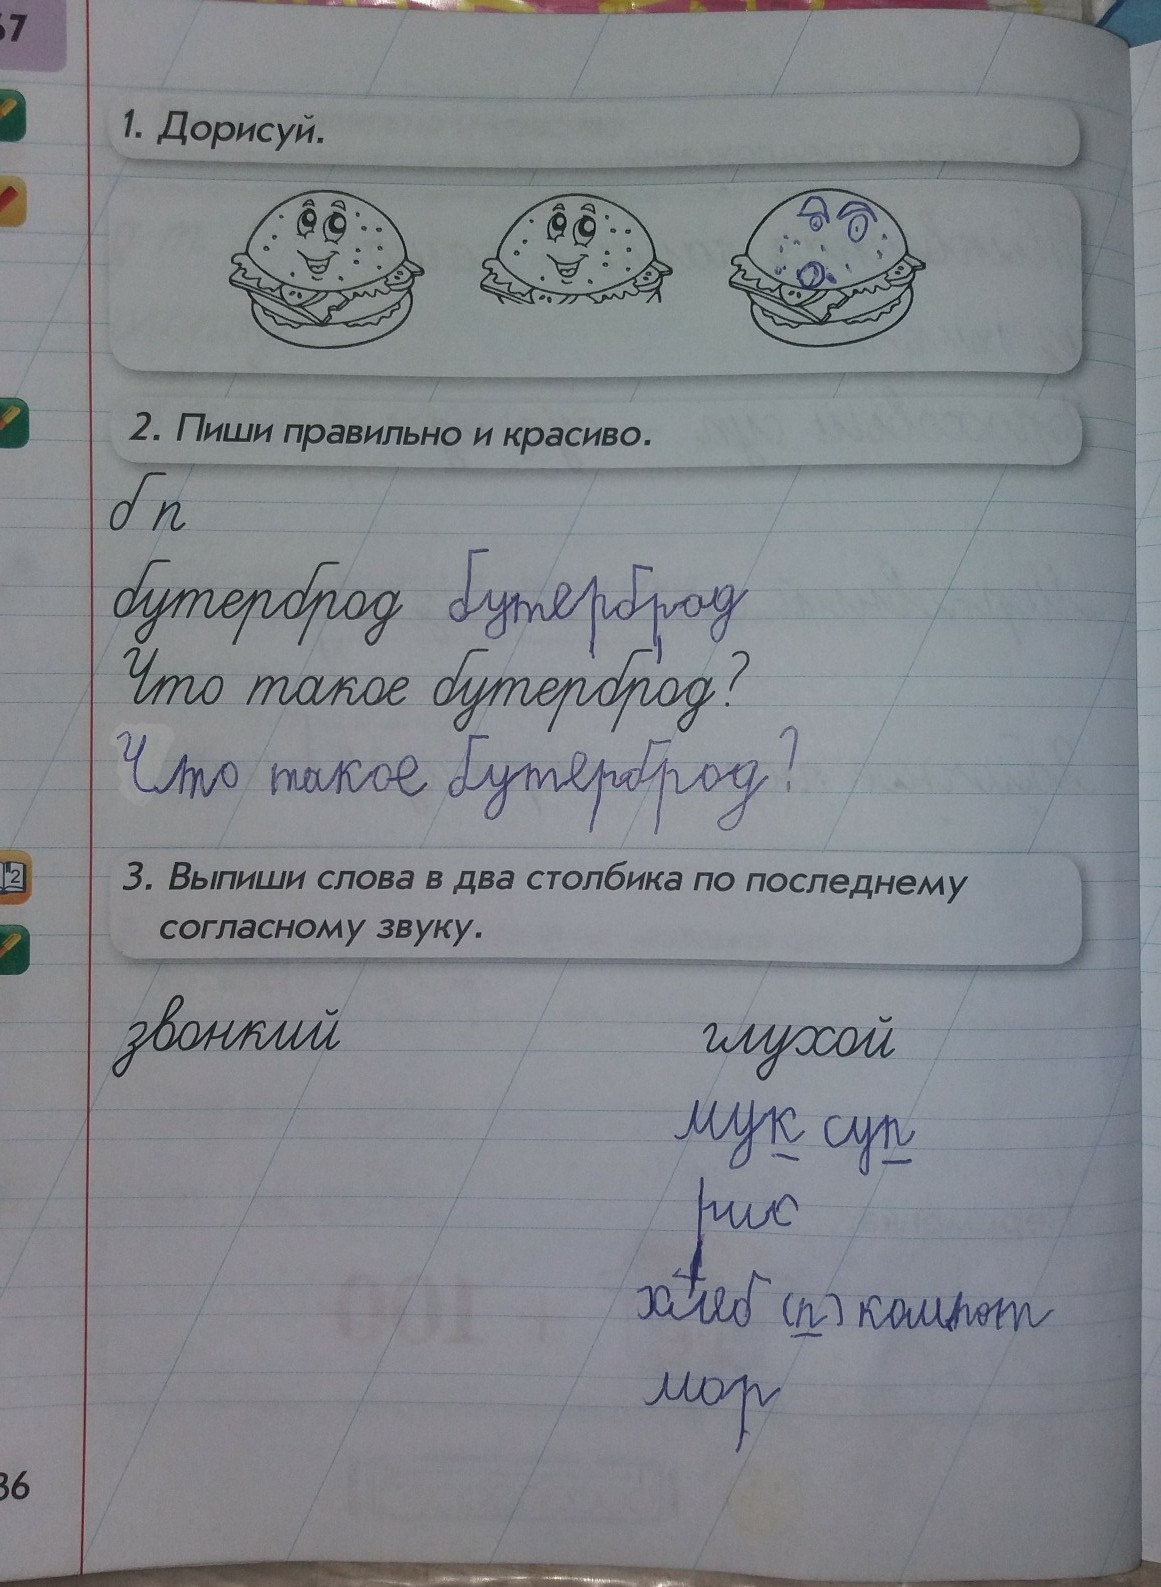 67
1. Дорисуй.
2. Пиши правильно и красиво.
б п
бутерброд бутерброд
Что такое бутерброд?
Что такое бутерброд?
2
3. Выпиши слова в два столбика по последнему
согласному звуку.
звонкий глухой
мук суп
рис
хлеб (п) компот
мор
36